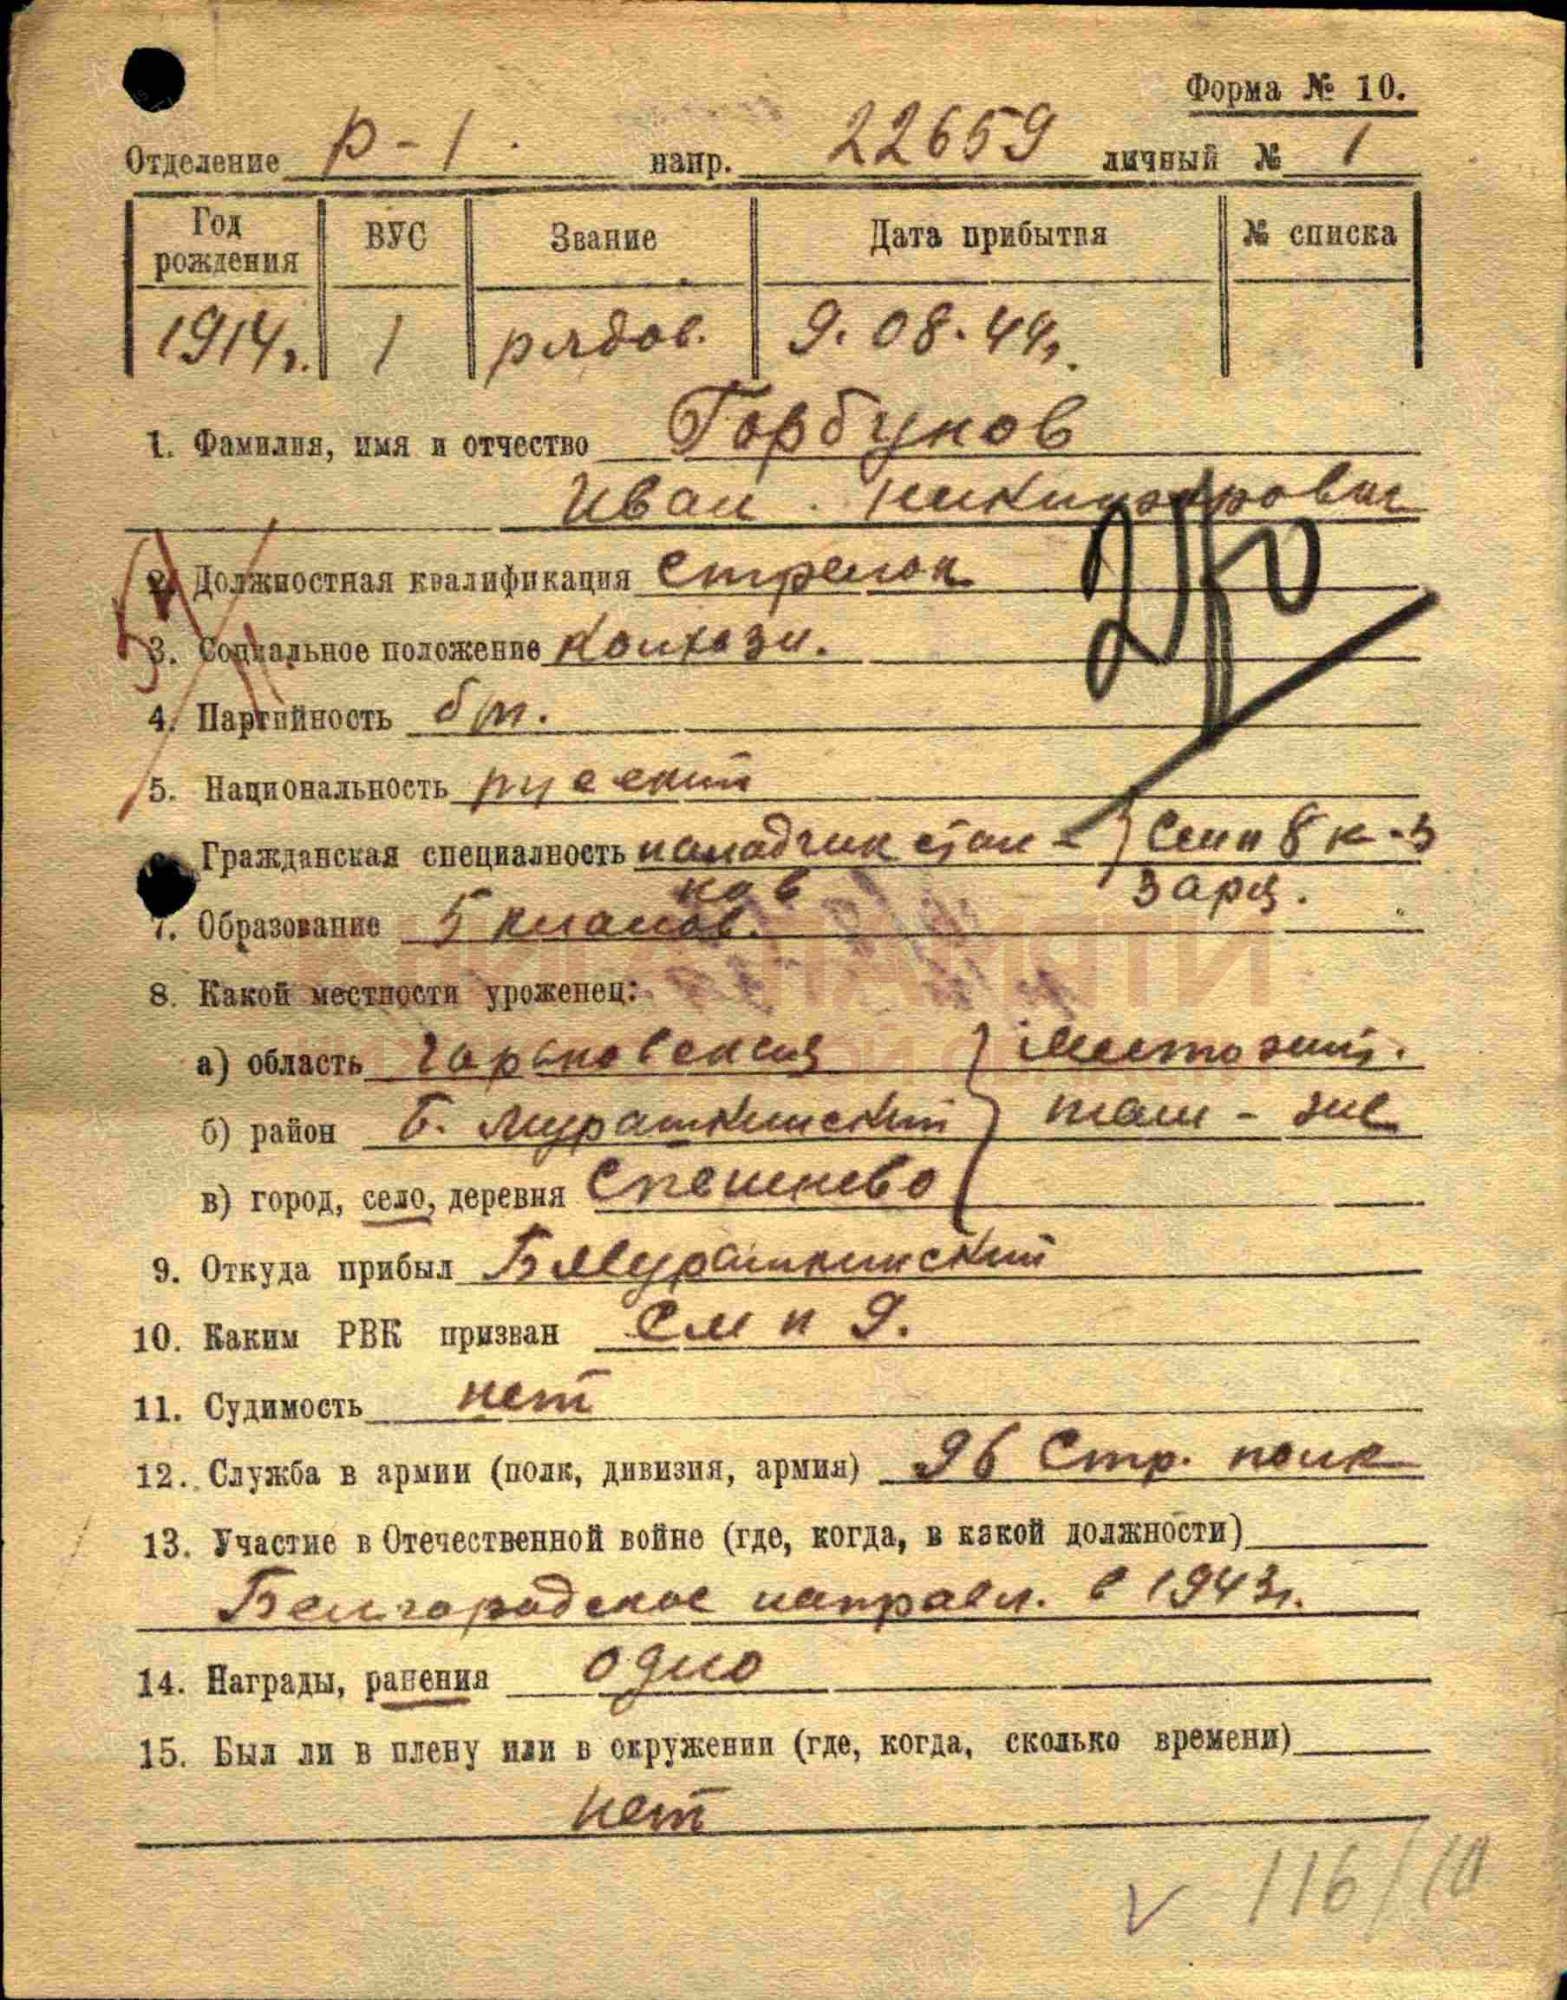 Форма № 10.
Отделение Р-1. напр. 22659 личный № 1
Год рождения ВУС Звание Дата прибытия № списка
1914г. 1 рядов. 9.08.44г.
1. Фамилия, имя и отчество Горбунов
Иван
2. Должностная квалификация стрелок
3. Социальное положение колхозн.
4. Партийность б/п.
5. Национальность русский
Гражданская специалность наладчик стан-
ков
7. Образование 5 классов.
8. Какой местности уроженец:
а) область Горьковская
б) район Б. Мурашкинский
в) город, село, деревня Спешнево
Местожит.
там-же
9. Откуда прибыл Б Мурашкинский
10. Каким РВК призван См п 9.
11. Судимость нет
12. Служба в армии (полк, дивизия, армия) 96 Стр. полк
13. Участие в Отечественной войне (где, когда, в какой должности)
Белгородское направл. в 1943г.
14. Награды, ранения одно
15. Был ли в плену или в окружении (где, когда, сколько времени)
нет
КНИГА ПАМЯТИ